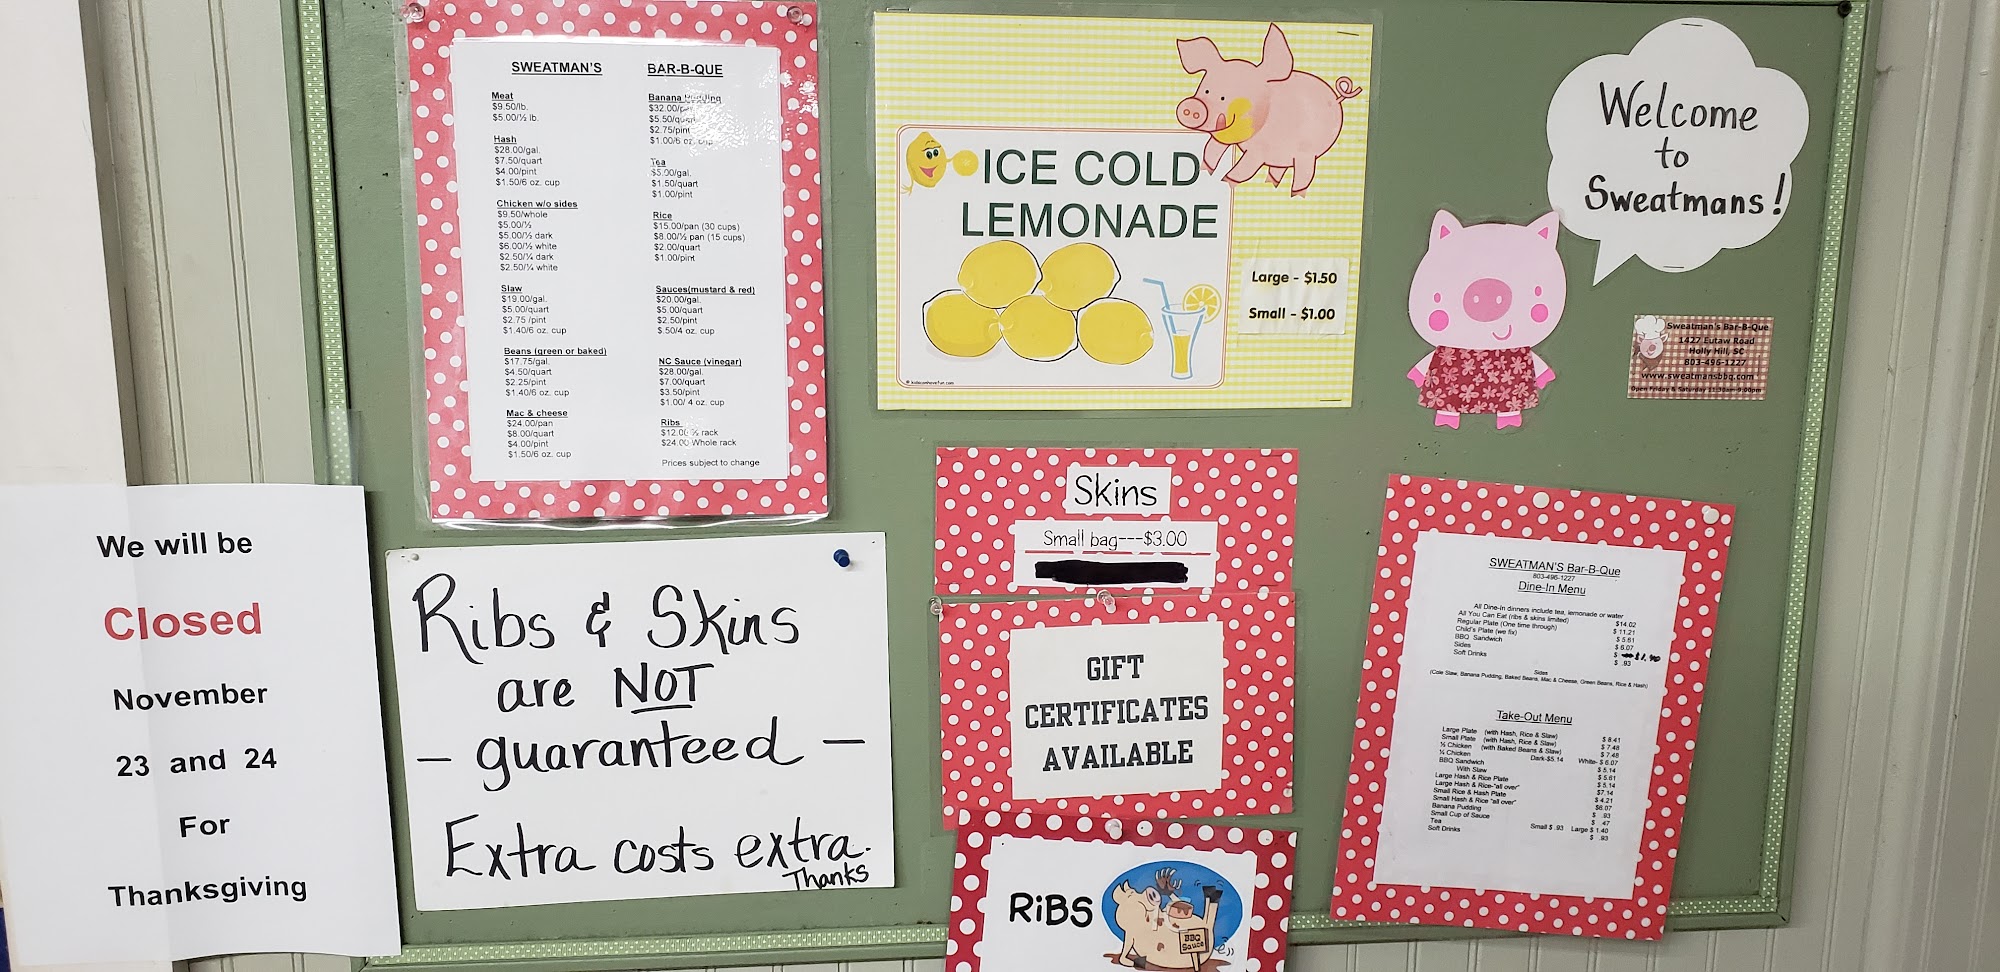 SWEATMAN'S BAR-B-QUE
Meat
$9.50/lb.
$5.00/½ lb.
Hash
$28.00/gal.
$7.50/quart
$4.00/pint
$1.50/6 oz. cup
Chicken w/o sides
$9.50/whole
$5.00/½
$5.00/½ dark
$6.00/½ white
$2.50/¼ dark
$2.50/¼ white
Slaw
$19.00/gal.
$5.00/quart
$2.75 /pint
$1.40/6 oz. cup
Beans (green or baked)
$17.75/gal.
$4.50/quart
$2.25/pint
$1.40/6 oz. cup
Mac & cheese
$24.00/pan
$8.00/quart
$4.00/pint
$1.50/6 oz. cup
Banana Pudding
$32.00/pan
$5.50/quart
$2.75/pint
$1.00/6 oz. cup
Tea
$5.00/gal.
$1.50/quart
$1.00/pint
Rice
$15.00/pan (30 cups)
$8.00/½ pan (15 cups)
$2.00/quart
$1.00/pint
Sauces(mustard & red)
$20.00/gal.
$5.00/quart
$2.50/pint
$.50/4 oz. cup
NC Sauce (vinegar)
$28.00/gal.
$7.00/quart
$3.50/pint
$1.00/ 4 oz. cup
Ribs
$12.00 ½ rack
$24.00 Whole rack
Prices subject to change
ICE COLD
LEMONADE
Large - $1.50
Small - $1.00
Welcome
to
Sweatmans!
Sweatman's Bar-B-Que
1427 Eutaw Road
Holly Hill, SC
803-496-1227
www.sweatmansbbq.com
Open Friday & Saturday 11:30am-9:00pm
We will be
Closed
November
23 and 24
For
Thanksgiving
Ribs & Skins
are NOT
- guaranteed -
Extra costs extra.
Thanks
Skins
Small bag---$3.00
GIFT
CERTIFICATES
AVAILABLE
RiBS
BBQ
Sauce
SWEATMAN'S Bar-B-Que
803-496-1227
Dine-In Menu
All Dine-In dinners include tea, lemonade or water
All You Can Eat (ribs & skins limited) $14.02
Regular Plate (One time through) $ 11.21
Child's Plate (we fix) $ 5.61
BBQ Sandwich $ 6.07
Sides $ $1.40
Soft Drinks $ .93
Sides
(Cole Slaw, Banana Pudding, Baked Beans, Mac & Cheese, Green Beans, Rice & Hash)
Take-Out Menu
Large Plate (with Hash, Rice & Slaw) $ 8.41
Small Plate (with Hash, Rice & Slaw) $ 7.48
½ Chicken (with Baked Beans & Slaw) $ 7.48
¼ Chicken Dark-$5.14 White- $ 6.07
BBQ Sandwich $ 5.14
With Slaw $ 5.61
Large Hash & Rice Plate $ 5.14
Large Hash & Rice-"all over" $7.14
Small Rice & Hash Plate $ 4.21
Small Hash & Rice "all over" $6.07
Banana Pudding $ .93
Small Cup of Sauce $ .47
Tea Small $ .93 Large $ 1.40
Soft Drinks $ .93